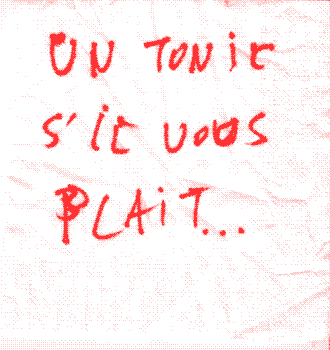 UN TONIC
S'IL VOUS
PLAIT...